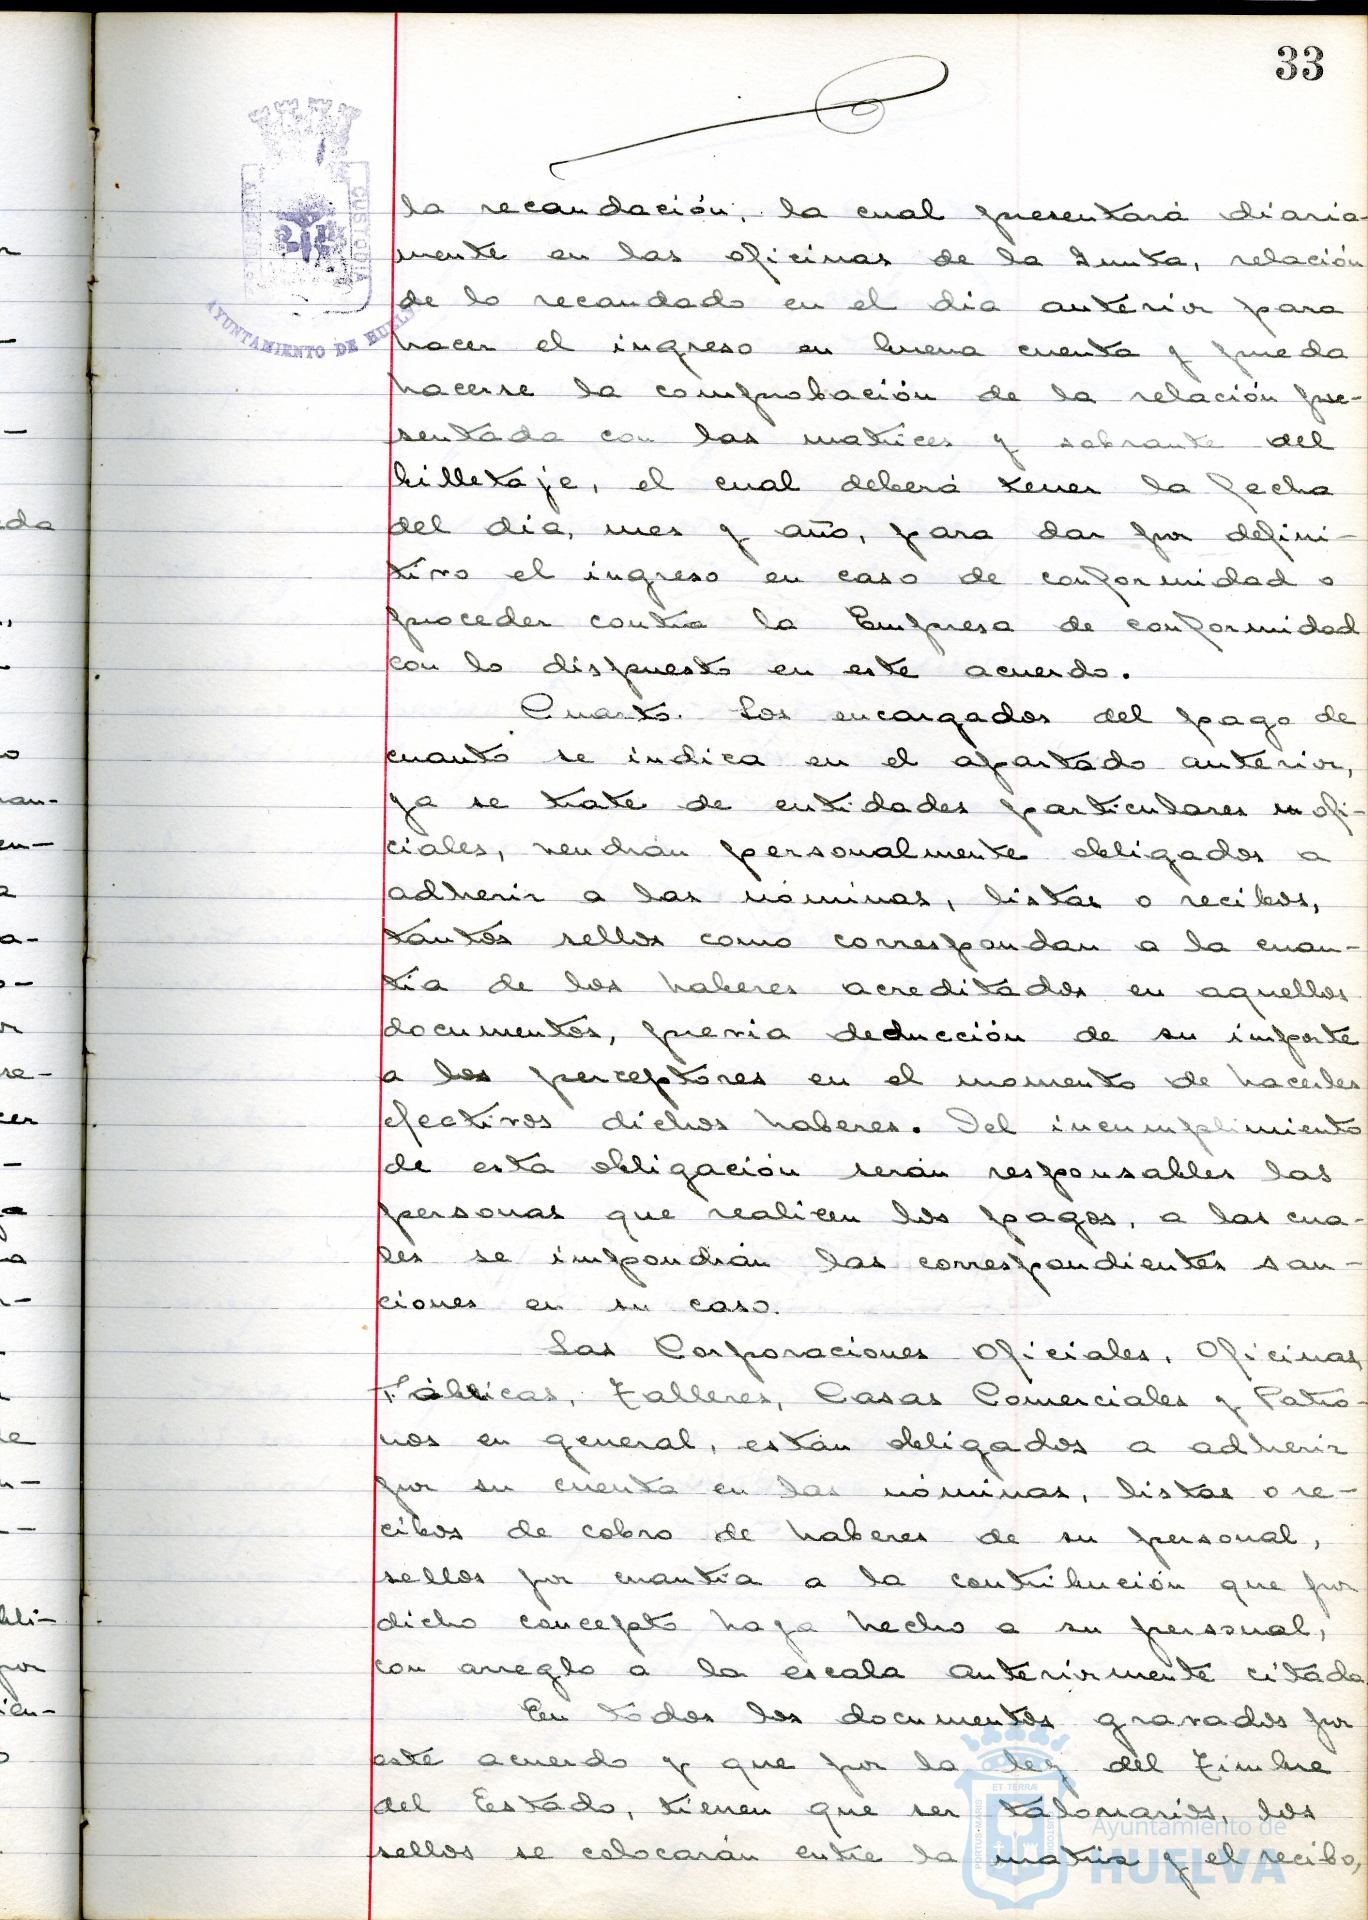 33
CUSTODIA
AYUNTAMIENTO DE HUELVA
la recaudación, la cual presentará diaria-
mente en las oficinas de la Junta, relación
de lo recaudado en el dia anterior para
hacer el ingreso en buena cuenta y pueda
hacerse la comprobación de la relación pre-
sentada con las matrices y sobrante del
billetaje, el cual deberá tener la fecha
del dia, mes y año, para dar por defini-
tivo el ingreso en caso de conformidad o
proceder contra la Empresa de conformidad
con lo dispuesto en este acuerdo.
Cuarto. Los encargados del pago de
cuanto se indica en el apartado anterior,
ya se trate de entidades particulares u ofi-
ciales, vendrán personalmente obligados a
adherir a las nóminas, listas o recibos,
tantos sellos como correspondan a la cuan-
tia de los haberes acreditados en aquellos
documentos, previa deducción de su importe
a los perceptores en el momento de hacerles
efectivos dichos haberes. Del incumplimiento
de esta obligación serán responsables las
personas que realicen los pagos, a las cua-
les se impondrán las correspondientes san-
ciones en su caso.
Las Corporaciones Oficiales, Oficinas
Fábricas, Talleres, Casas Comerciales y Patro-
nos en general, están obligados a adherir
por su cuenta en las nóminas, listas o re-
cibos de cobro de haberes de su personal,
sellos por cuantia a la contribución que por
dicho concepto haya hecho a su personal,
con arreglo a la escala anteriormente citada
En todos los documentos gravados por
este acuerdo y que por la ley del Timbre
del Estado, tienen que ser talonarios, los
sellos se colocarán entre la matriz y el recibo,
PORTUS MARIS
ET TERRÆ
CUSTODIA
Ayuntamiento de
HUELVA